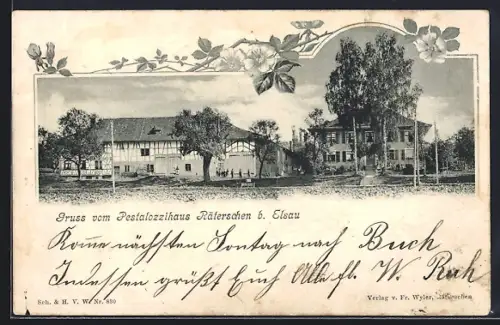 Gruss vom Pestalozzihaus Räterschen b. Elsau
Komme nächsten Sonntag nach Buch
Indessen grüßt Euch Alle fl. W. Ruh
Sch. & H. V. W. Nr. 830
Verlag v. Fr. Wyler,